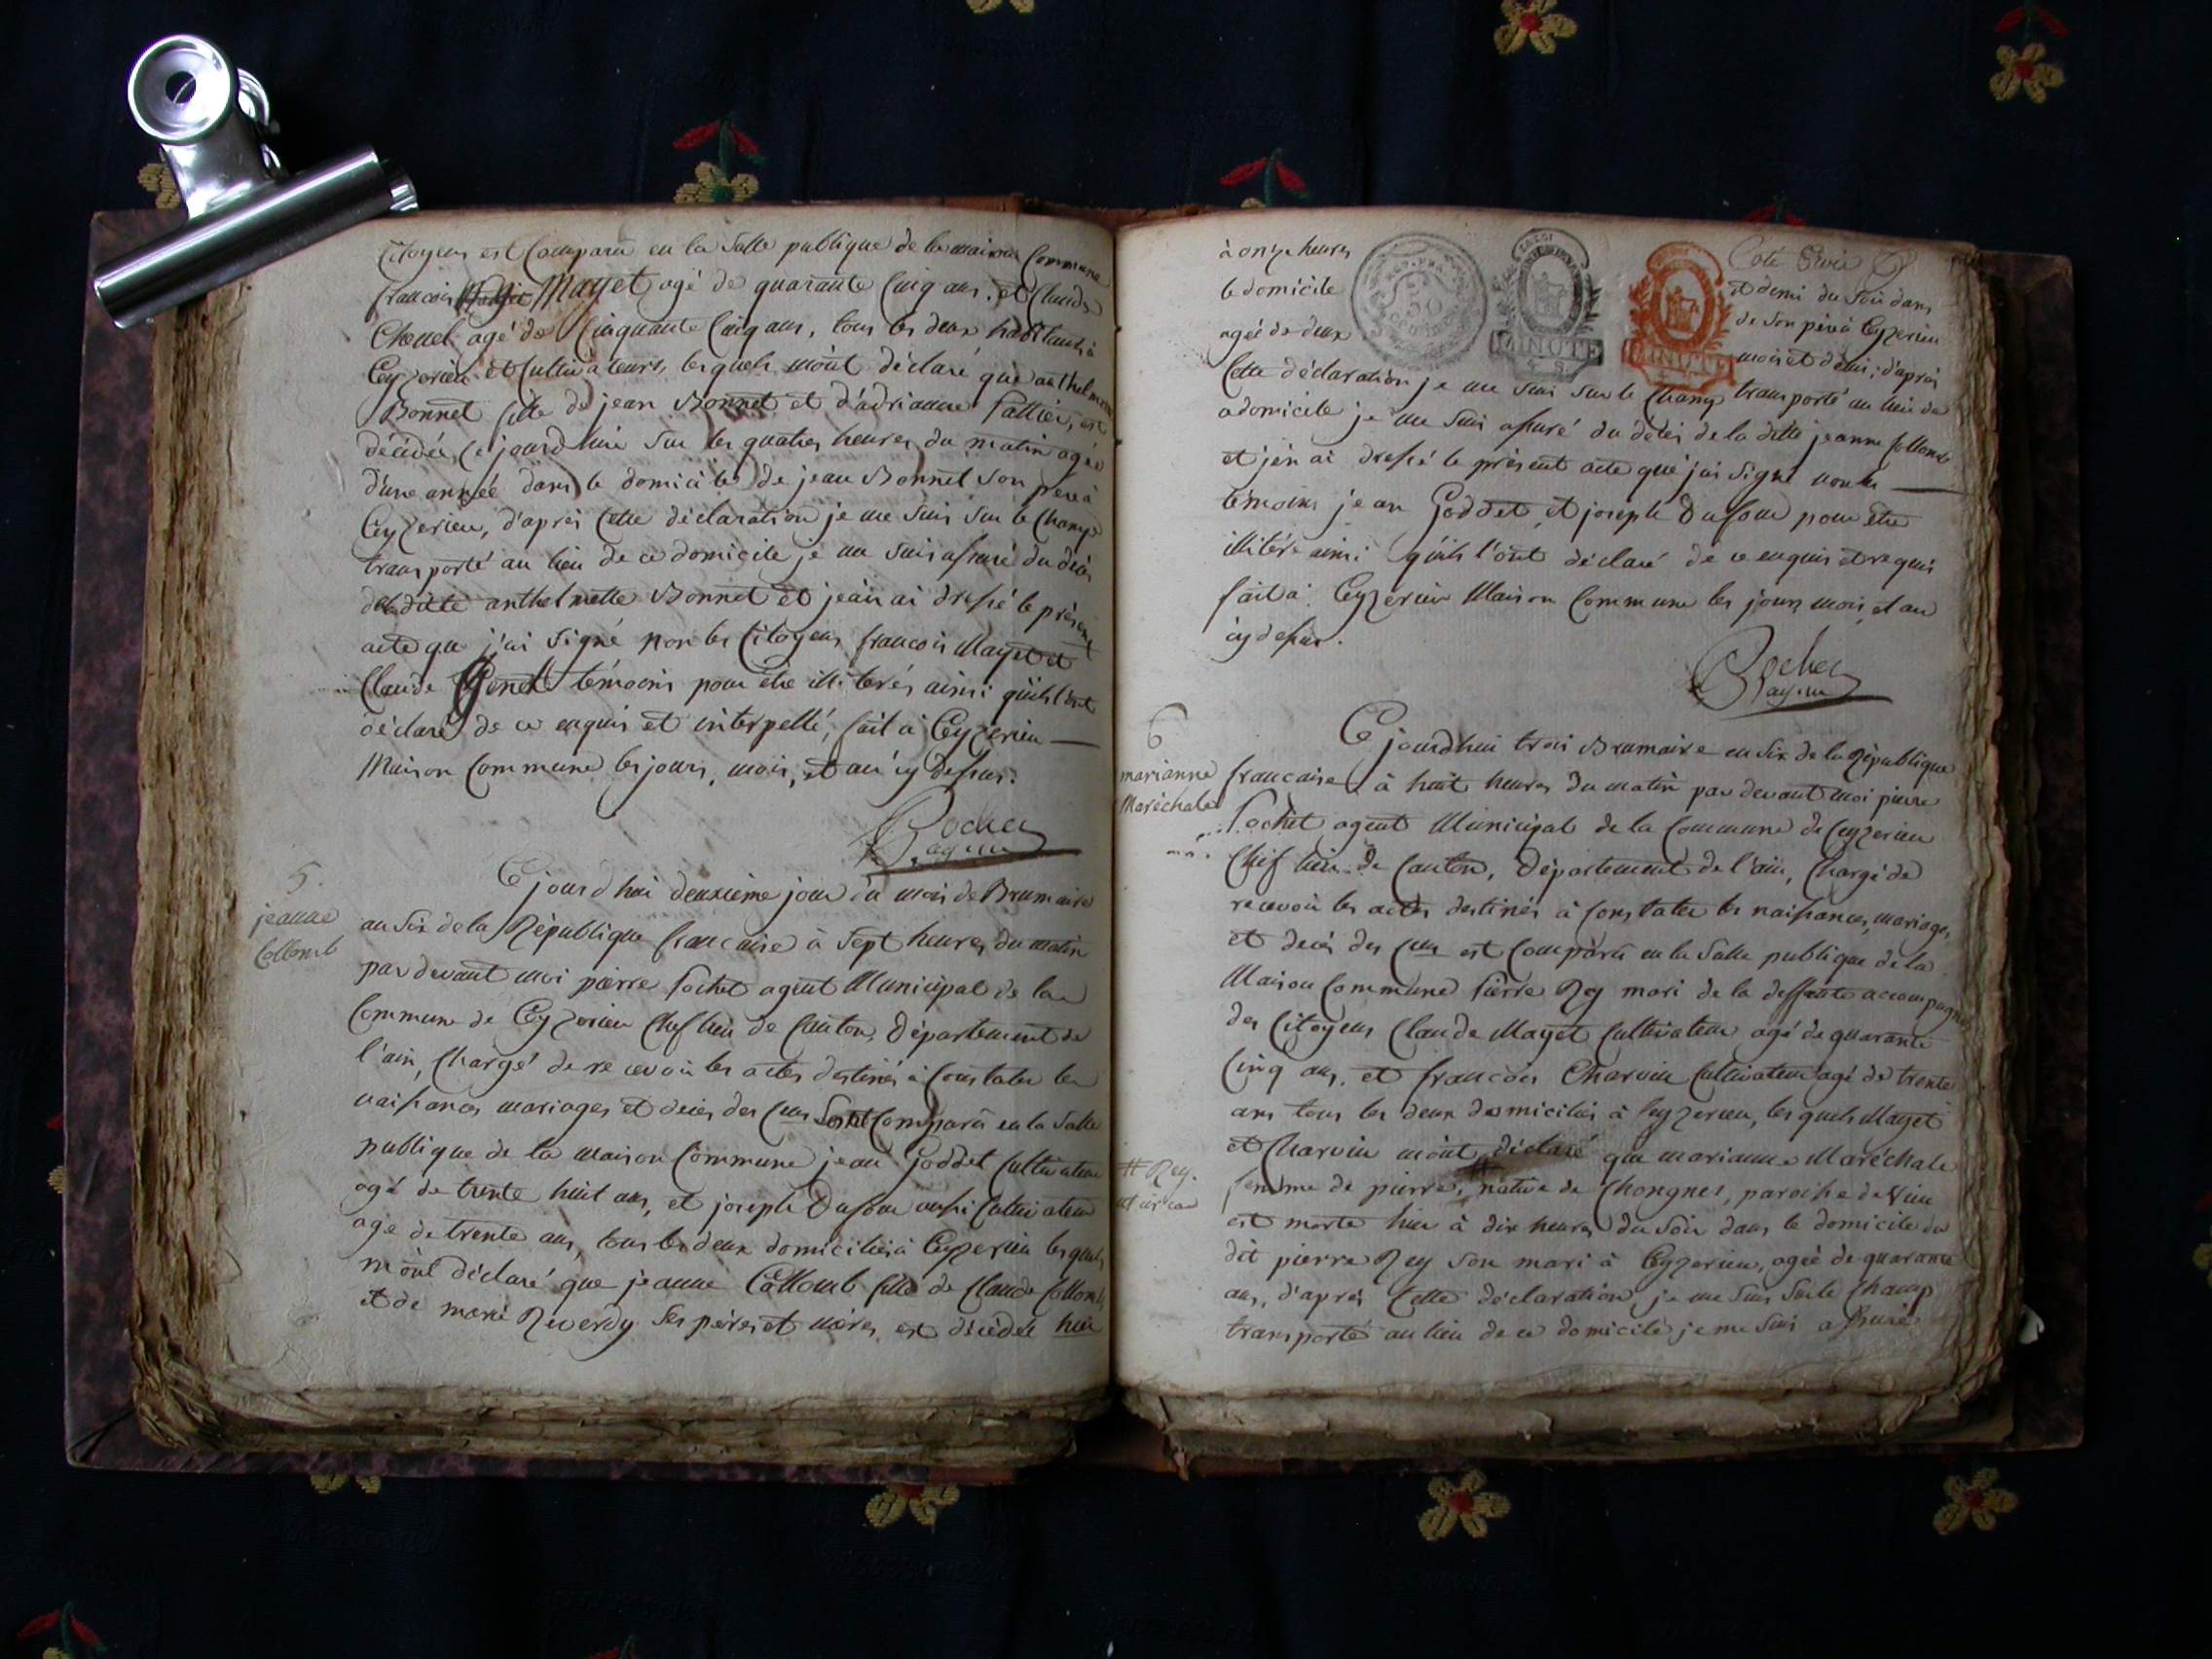 Citoyens est Comparu en la Salle publique de la maison Commune
francois Mayet agé de quarante Cinq ans, et Claude
Chenel agé de Cinquante Cinq ans, tous les deux habitants à
Ceyzerieu et Cultivateurs, lesquels m'ont déclaré que anthelmette
Bonnet fille de jean Bonnet et d'adrianne est
décédée Cejourdhui sur les quatres heures du matin agée
d'une année dans le domicile de jean Bonnet son pere à
Ceyzerieu, d'après Cette déclaration je me suis sur le Champ
transporté au lieu de ce domicile je me suis assuré du décès
de ladite anthelmette Bonnet et j'en ai dressé le présent
acte que j'ai signé non les Citoyens francois Mayet et
Claude témoins pour être illiterés ainsi qu'ils l'ont
déclaré de ce enquis et interpellé, fait à Ceyzerieu
Maison Commune les jours, mois, et an cy dessus.
5.
jeanne
Collomb
Cejourdhui deuxième jour du mois de Brumaire
an Six de la République francaise à Sept heures du matin
par devant moi pierre Pochet agent Municipal de la
Commune de Ceyzerieu Chef lieu de Canton, Département de
l'ain, Chargé de recevoir les actes destinés à Constater les
naissances mariages et décès des Cens Sont Comparu en la Salle
publique de la maison Commune jean Goddet Cultivateur
agé de trente huit ans, et joseph Dufour aussi Cultivateur
age de trente ans, tous les deux domiciliés à Ceyzerieu lesquels
m'ont déclaré que jeanne Collomb fille de Claude Collomb
et de marie Reverdy ses pères et mères, est décédée hier
à onze heures et demi du soir dans
le domicile de son père à Ceyzerieu
agée de deux mois et demi; d'après
Cette déclaration je me suis sur le Champ transporté au lieu de
a domicile je me suis assuré du décès de la dite jeanne Collomb
et j'en ai dressé le présent acte que j'ai signé non les
témoins jean Goddet et joseph Dufour pour être
illitéré ainsi qu'ils l'ont déclaré de ce enquis et requis
fait à Ceyzerieu Maison Commune les jours mois et an
cy dessus.
6
marianne
Maréchale
Cejourdhui trois Brumaire an Six de la République
francaise, à huit heures du matin par devant moi pierre
Pochet agent Municipal de la Commune de Ceyzerieu
Chef lieu de Canton, Département de l'ain, Chargé de
recevoir les actes destinés à Constater les naissances, mariages,
et décès des Cens est Comparu en la Salle publique de la
Maison Commune Pierre Rey mari de la deffunte accompagné
des Citoyens Claude Mayet Cultivateur agé de quarante
Cinq ans, et francois Charvin Cultivateur agé de trente
ans tous les deux domiciliés à Ceyzerieu, lesquels Mayet
et Charvin m'ont déclaré que marianne Maréchale
femme de pierre # native de Chongnes, paroisse de Vieu
# Rey.
est morte hier à dix heures du soir dans le domicile du
dit pierre Rey son mari à Ceyzerieu, agée de quarante
ans, d'après Cette déclaration, je me suis sur le Champ
transporté au lieu de ce domicile je me suis assuré
MINUTE
MINUTE
50